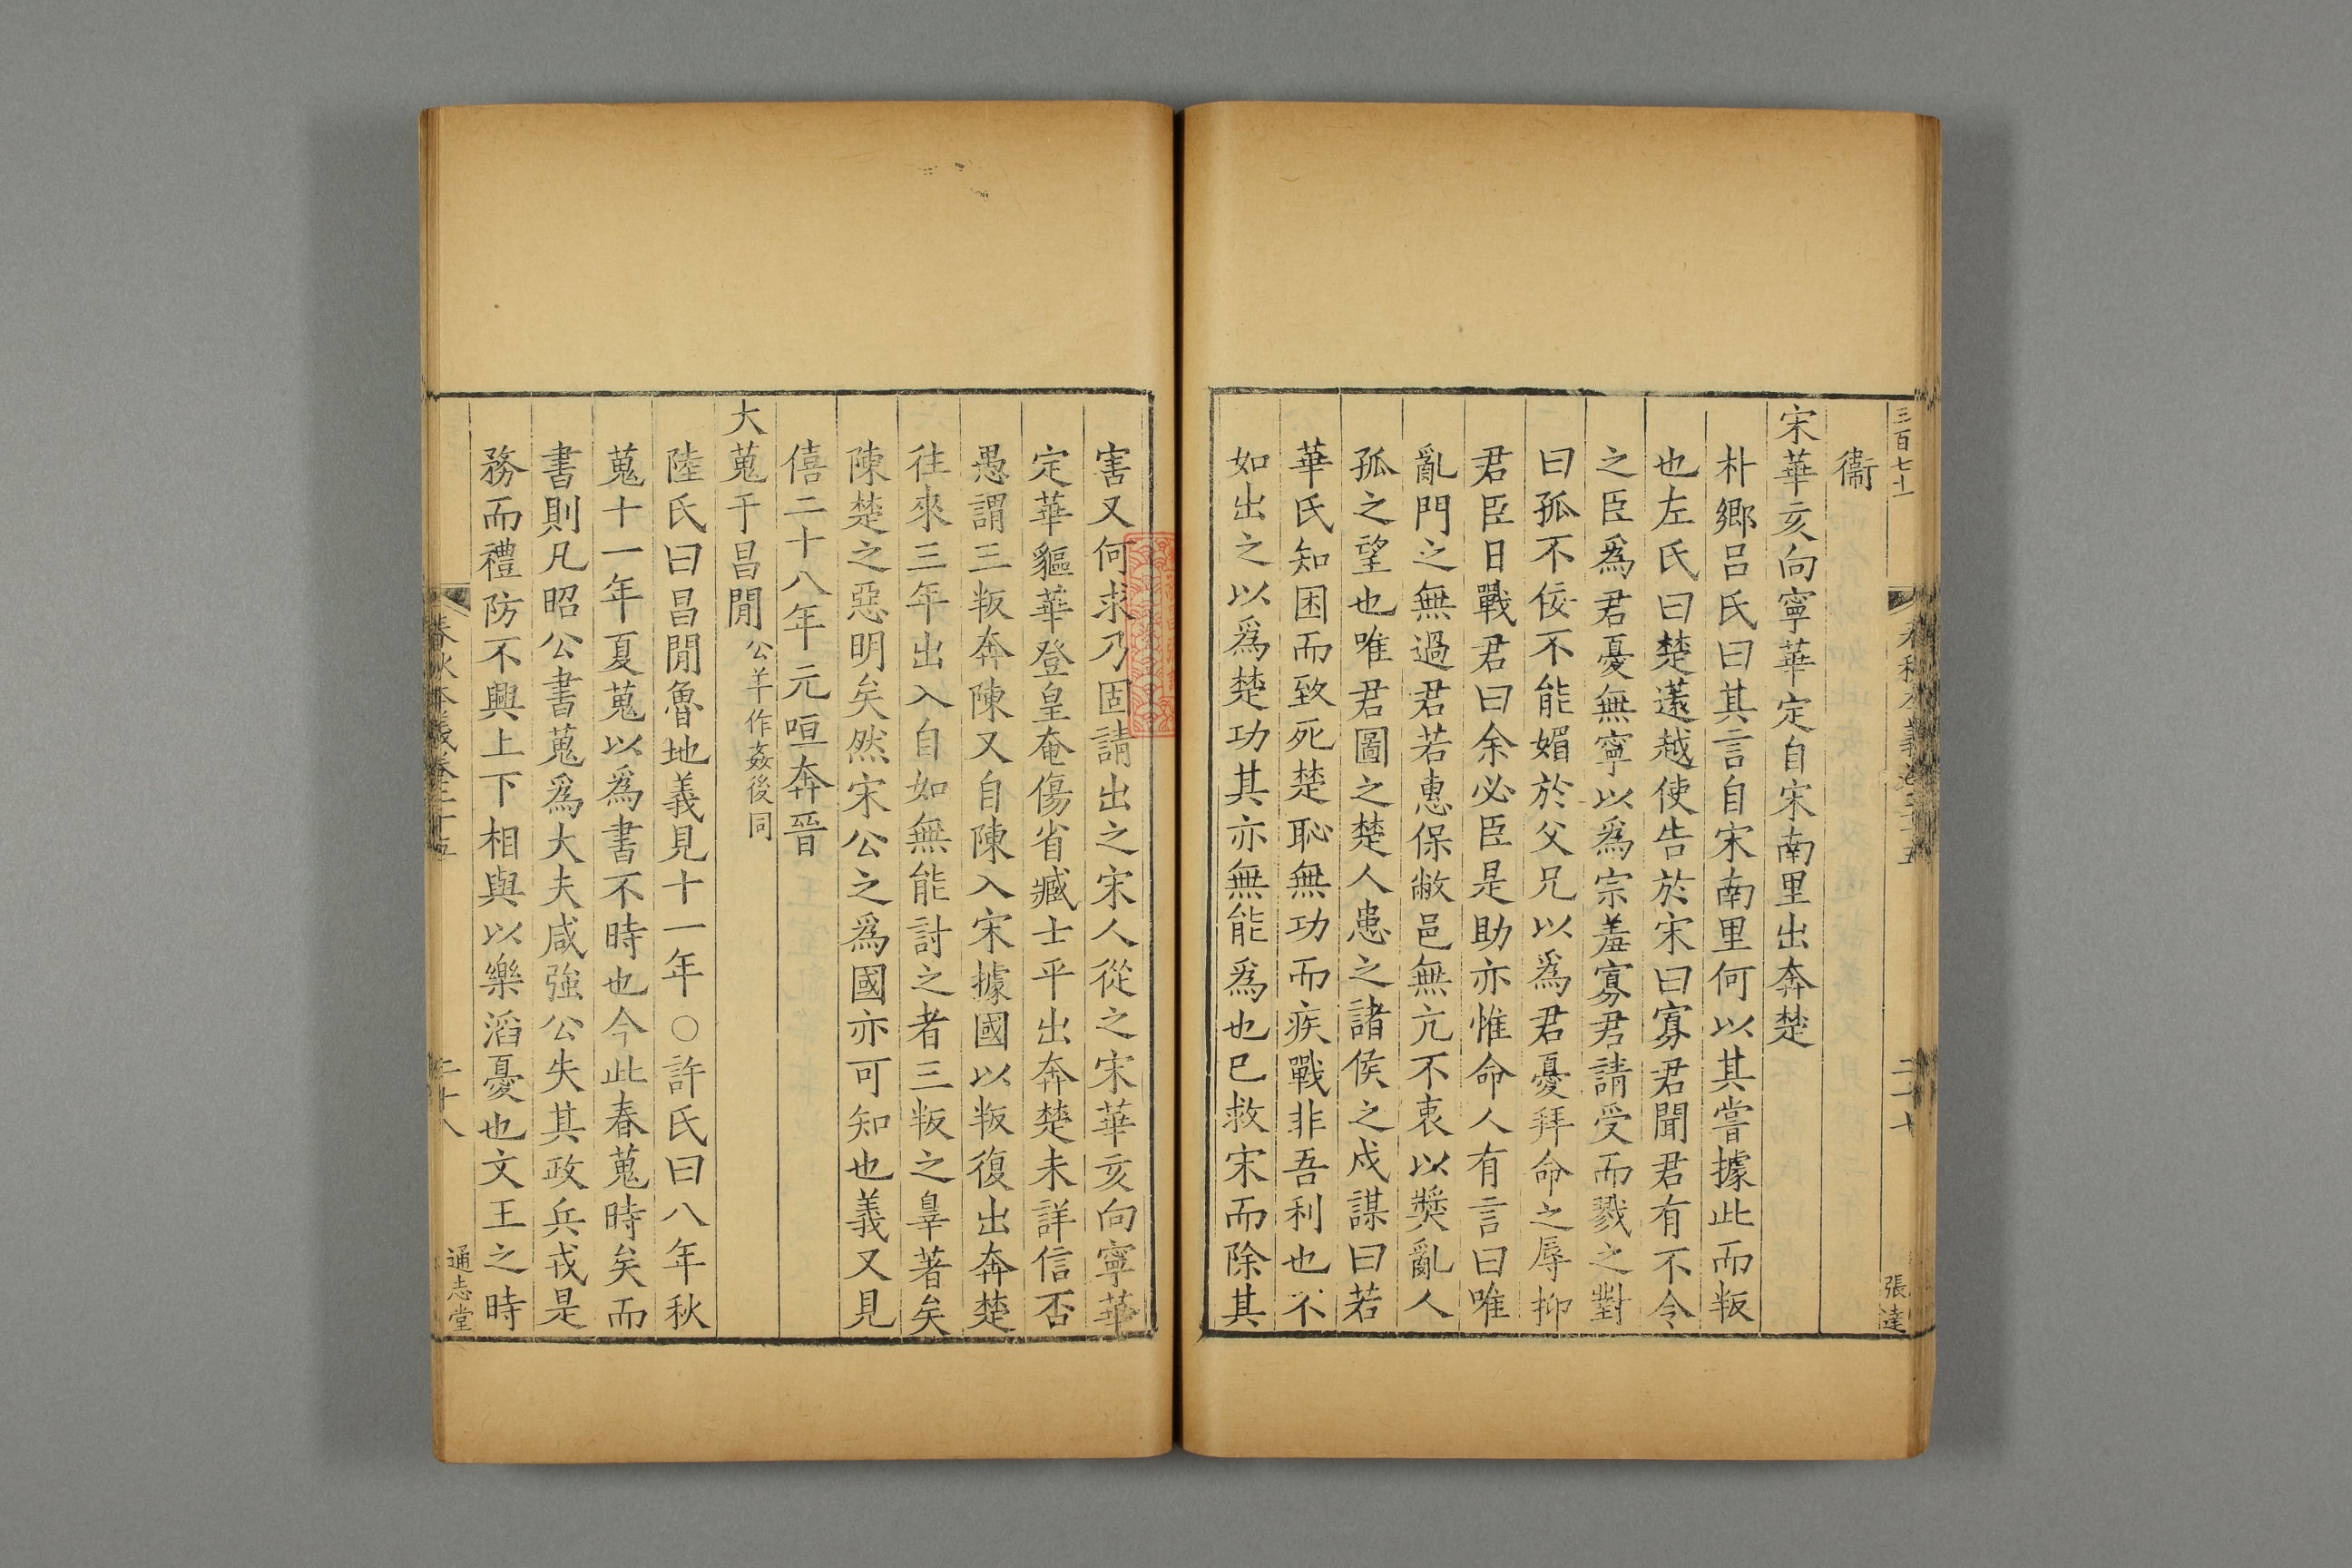 三百七十
春秋本義卷二十五
二十七
張達
衞
宋華亥向寧華定自宋南里出奔楚
朴鄉呂氏曰其言自宋南里何以其嘗據此而叛
也左氏曰楚薳越使告於宋曰寡君聞君有不令
之臣爲君憂無寧以爲宗羞寡君請受而戮之對
曰孤不佞不能媚於父兄以爲君憂拜命之辱抑
君臣日戰君曰余必臣是助亦惟命人有言曰唯
亂門之無過君若惠保敝邑無亢不衷以獎亂人
孤之望也唯君圖之楚人患之諸侯之戍謀曰若
華氏知困而致死楚恥無功而疾戰非吾利也不
如出之以爲楚功其亦無能爲也已救宋而除其
害又何求乃固請出之宋人從之宋華亥向寧華
定華貙華登皇奄傷省臧士平出奔楚未詳信否
愚謂三叛奔陳又自陳入宋據國以叛復出奔楚
往來三年出入自如無能討之者三叛之辠著矣
陳楚之惡明矣然宋公之爲國亦可知也義又見
僖二十八年元咺奔晉
大蒐于昌閒公羊作姦後同
陸氏曰昌閒魯地義見十一年○許氏曰八年秋
蒐十一年夏蒐以爲書不時也今此春蒐時矣而
書則凡昭公書蒐爲大夫咸強公失其政兵戎是
務而禮防不興上下相與以樂滔憂也文王之時
春秋本義卷二十五
二十八
通志堂